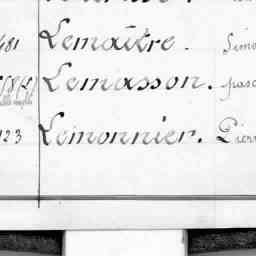 481 Lemaître. Simo
Lemasson. pasc
123 Lemonnier. Pierr